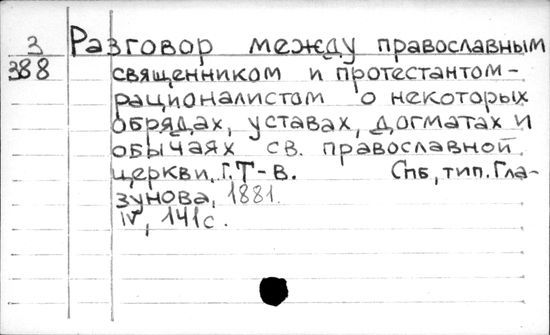 З Разговор между православным
388 священником и протестантом-
рационалистом о некоторых
обрядах, уставах, догматах и
обычаях св. православной
церкви. Г.Т-в. Спб, тип. Гла-
зунова, 1881.
IV, 141с.